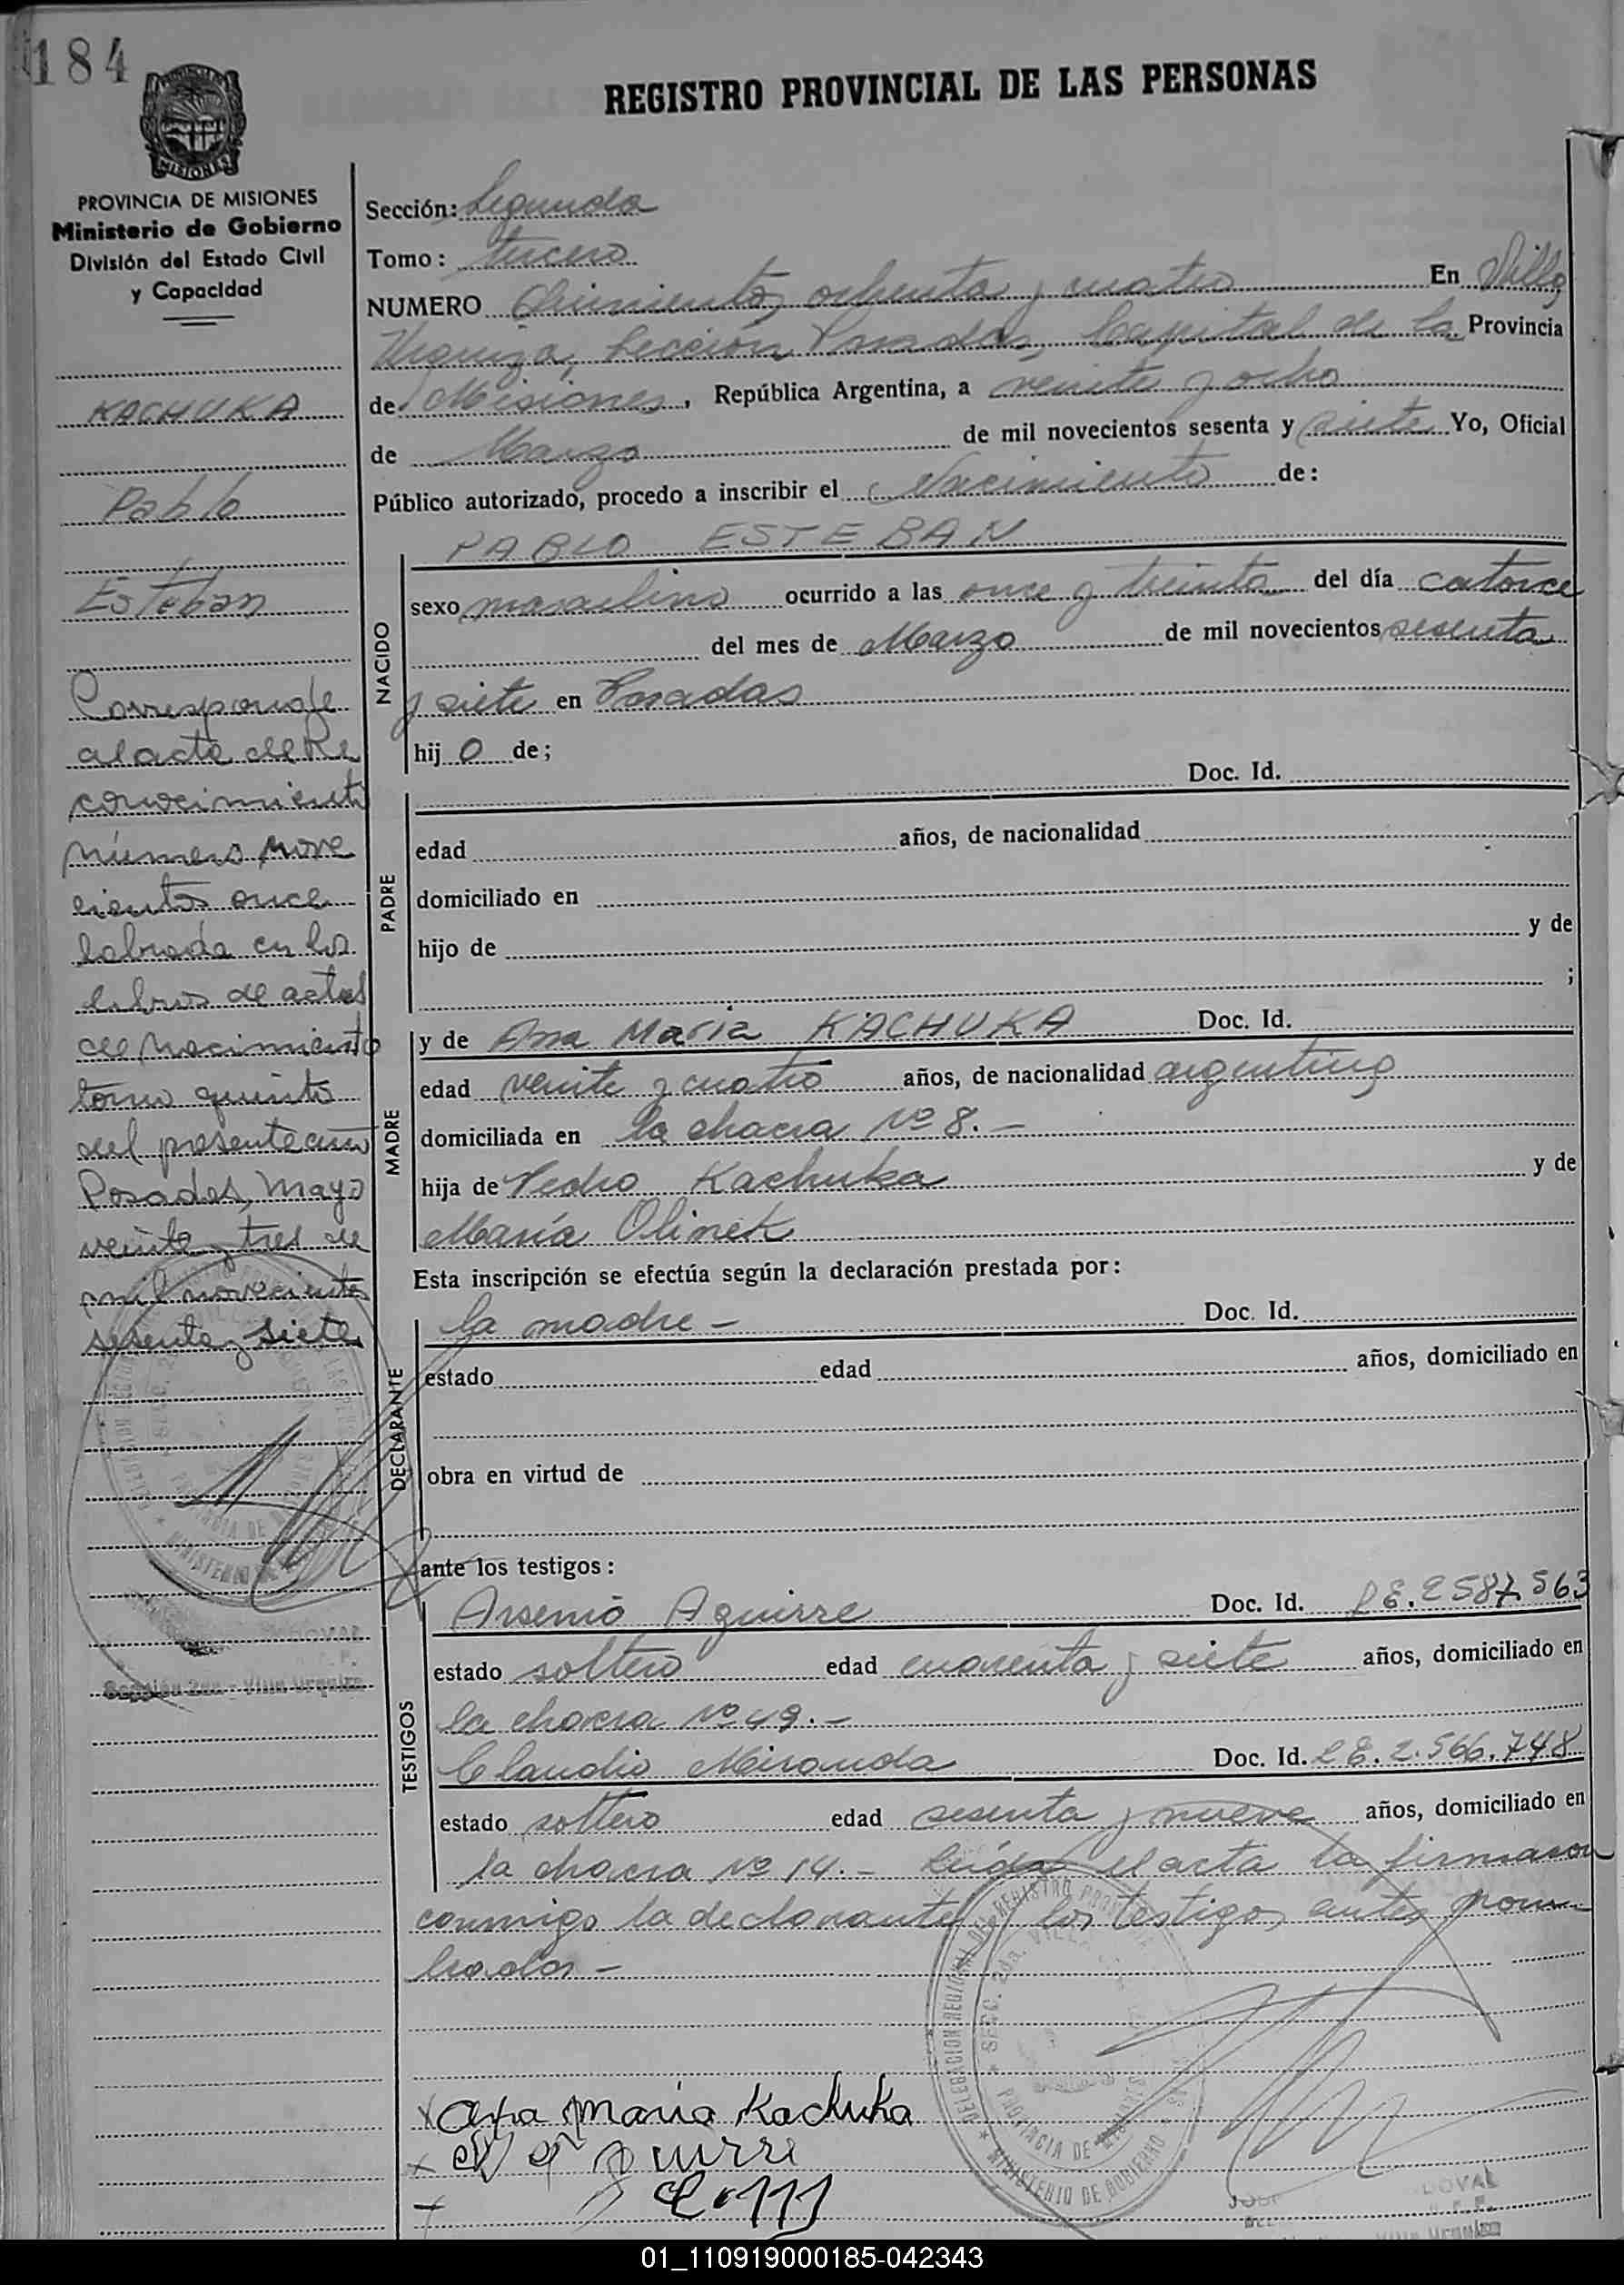 184
REGISTRO PROVINCIAL DE LAS PERSONAS
MISIONES
PROVINCIA DE MISIONES
Ministerio de Gobierno
División del Estado Civil
y Capacidad
KACHUKA
Pablo
Esteban
Corresponde
al acta de Re
conocimiento
número nove
cientos once
labrada en los
libros de actas
de Nacimiento
tomo quinto
del presente año
Posadas, Mayo
veinte y tres de
mil novecientos
sesenta y siete
Sección 2da - Villa Urquiza
Sección: Segunda
Tomo: tercero
NUMERO Quinientos ochenta y cuatro En Villa
Urquiza, Sección Posadas, Capital de la Provincia
de Misiones, República Argentina, a veinte y ocho
de Marzo de mil novecientos sesenta y siete Yo, Oficial
Público autorizado, procedo a inscribir el Nacimiento de:
PABLO ESTEBAN
NACIDO
sexo masculino ocurrido a las once y treinta del día catorce
del mes de Marzo de mil novecientos sesenta
y siete en Posadas
hij o de;
Doc. Id.
PADRE
edad años, de nacionalidad
domiciliado en
hijo de y de
;
MADRE
y de Ana Maria KACHUKA Doc. Id.
edad veinte y cuatro años, de nacionalidad argentina
domiciliada en la chacra Nº 8. -
hija de Pedro Kachuka y de
María Olinek
Esta inscripción se efectúa según la declaración prestada por:
DECLARANTE
la madre - Doc. Id.
estado edad años, domiciliado en
obra en virtud de
ante los testigos:
TESTIGOS
Arsenio Aguirre Doc. Id. LE. 2587.563
estado soltero edad cuarenta y siete años, domiciliado en
la chacra Nº 49. -
Claudio Miranda Doc. Id. LE. 2.566.748
estado soltero edad sesenta y nueve años, domiciliado en
la chacra Nº 14. - Leída el acta la firmaron
conmigo la declarante y los testigos antes nom
brados -
DELEGACION REGIONAL DEL REGISTRO PROVINCIAL
SECC. 2da. VILLA
PROVINCIA DE MISIONES
MINISTERIO DE GOBIERNO
x Ana Maria Kachuka
01_110919000185-042343